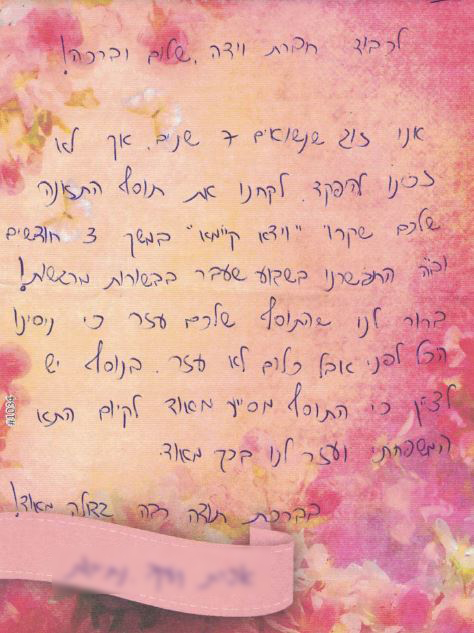 לכבוד חברת וידה, שלום וברכה!
אנו זוג שנשואים 7 שנים, אך לא
זכינו להפקד. לקחנו את תוסף התזונה
שלכם שקרוי "וידא קיימא" במשך 3 חודשים
וב"ה התבשרנו בשבוע שעבר בבשורות מרגשות!
ברור לנו שהתוסף שלכם עזר כי ניסינו
הכל לפני אבל כלום לא עזר. בנוסף יש
לציין כי התוסף מסייע מאוד לקיום התא
המשפחתי ועזר לנו בכך מאוד.
בברכת תודה רבה גדולה מאוד!
#1034